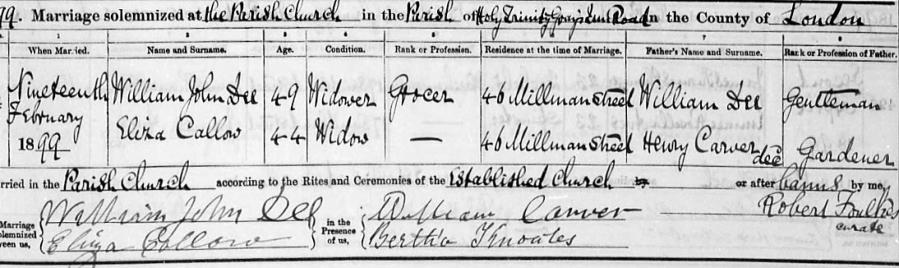 99. Marriage solemnized at the Parish Church in the Parish of Holy Trinity Gray's Inn Road in the County of London
1 2 3 4 5 6 7 8
When Married. Name and Surname. Age. Condition. Rank or Profession. Residence at the time of Marriage. Father's Name and Surname. Rank or Profession of Father.
Nineteenth William John Dee 49 Widower Grocer 46 Millman Street William Dee Gentleman
February
1899 Eliza Callow 44 Widow — 46 Millman Street Henry Carver decd Gardener
rried in the Parish Church according to the Rites and Ceremonies of the Established Church or after banns by me,
Marriage solemnized ween us, William John Dee Eliza Callow in the Presence of us, William Carver Bertha
Robert
curate